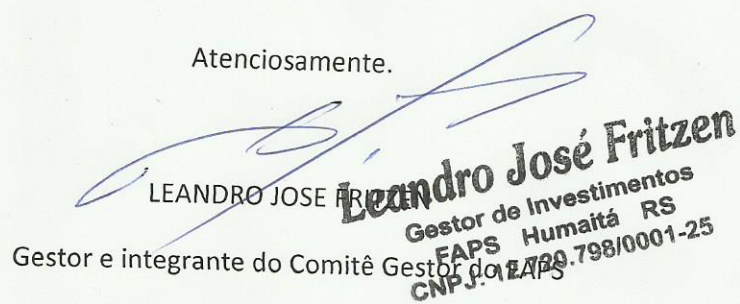 Atenciosamente.
LEANDRO JOSE FRITZEN
Gestor e integrante do Comitê Gestor do FAPS
Leandro José Fritzen
Gestor de Investimentos
FAPS Humaitá RS
CNPJ: .798/0001-25